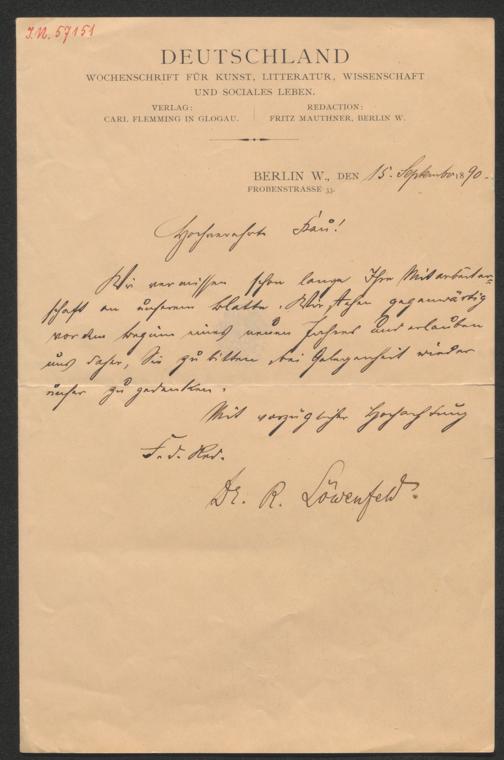 I.N. 57151
DEUTSCHLAND
WOCHENSCHRIFT FÜR KUNST, LITTERATUR, WISSENSCHAFT
UND SOCIALES LEBEN.
VERLAG:
CARL FLEMMING IN GLOGAU.
REDACTION:
FRITZ MAUTHNER, BERLIN W.
BERLIN W., DEN 15. September 1890.
FROBENSTRASSE 33.
Hochverehrte Frau!
Wir vermissen schon lange Ihre Mitarbeiter-
schaft an unserem Blatte. Wir stehen gegenwärtig
vor dem Beginn eines neuen Jahres und erlauben
uns daher, Sie zu bitten, bei Gelegenheit wieder
unser zu gedenken.
Mit vorzüglicher Hochachtung
F. d. Red.
Dr. R. Löwenfeld.